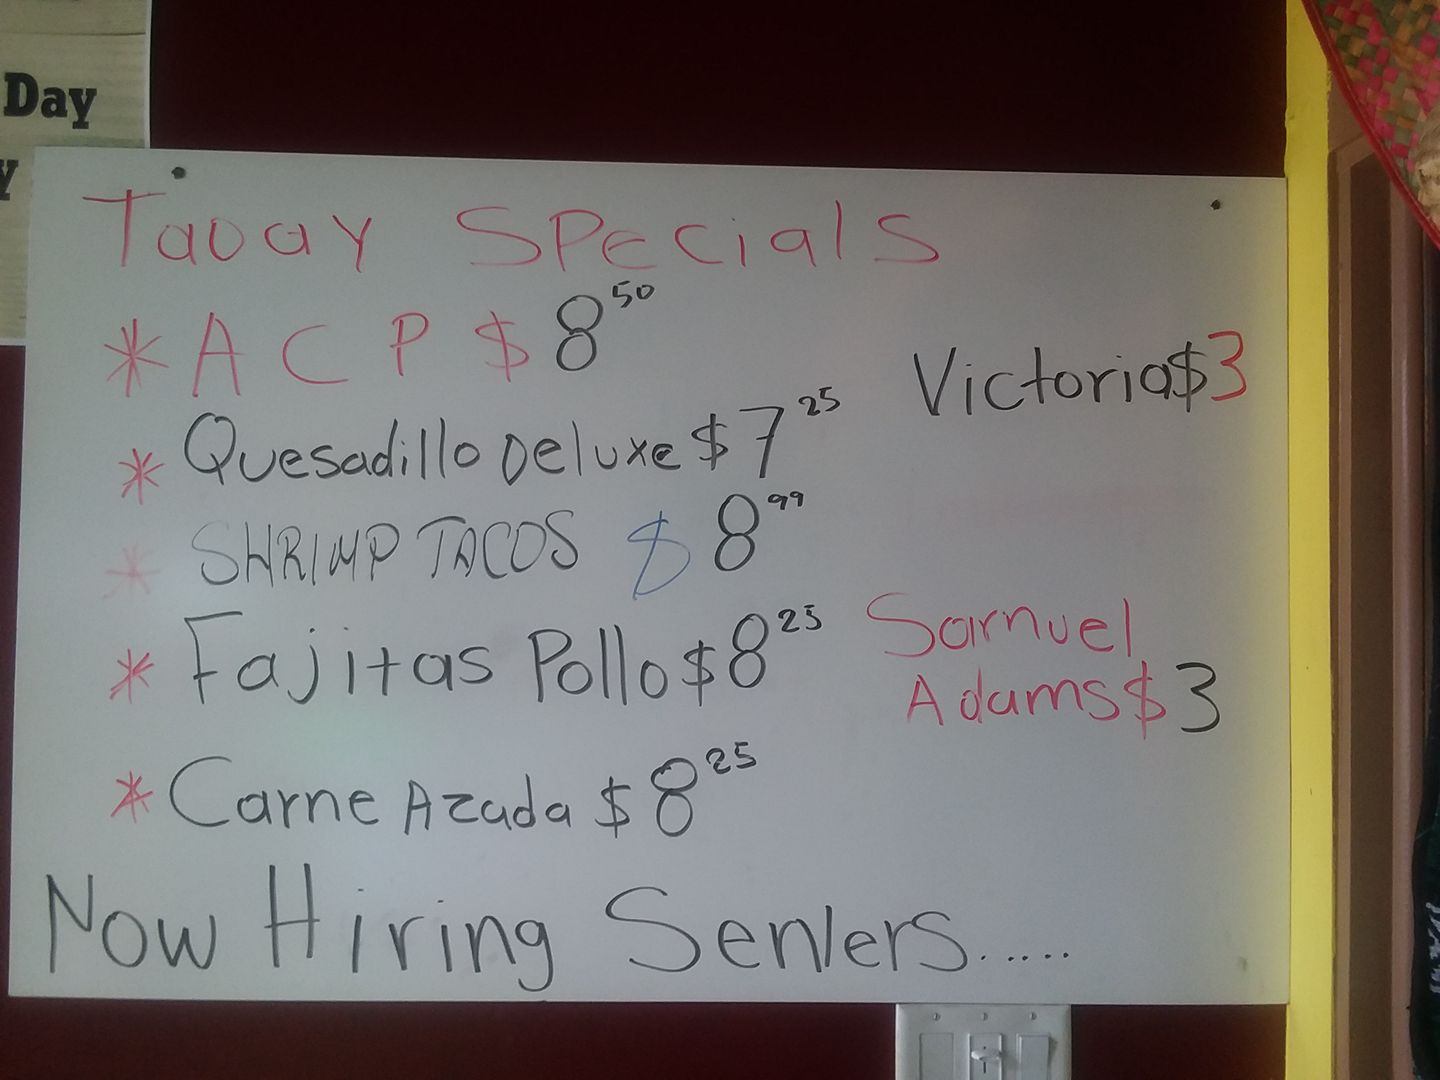 Day
y
Taday Specials
* A C P $ 8 50
* Quesadillo Deluxe $ 7 25
* SHRIMP TACOS $ 8 99
* Fajitas Pollo $ 8 25
* Carne Azada $ 8 25
Victoria $3
Samuel
Adams $3
Now Hiring Servers.....